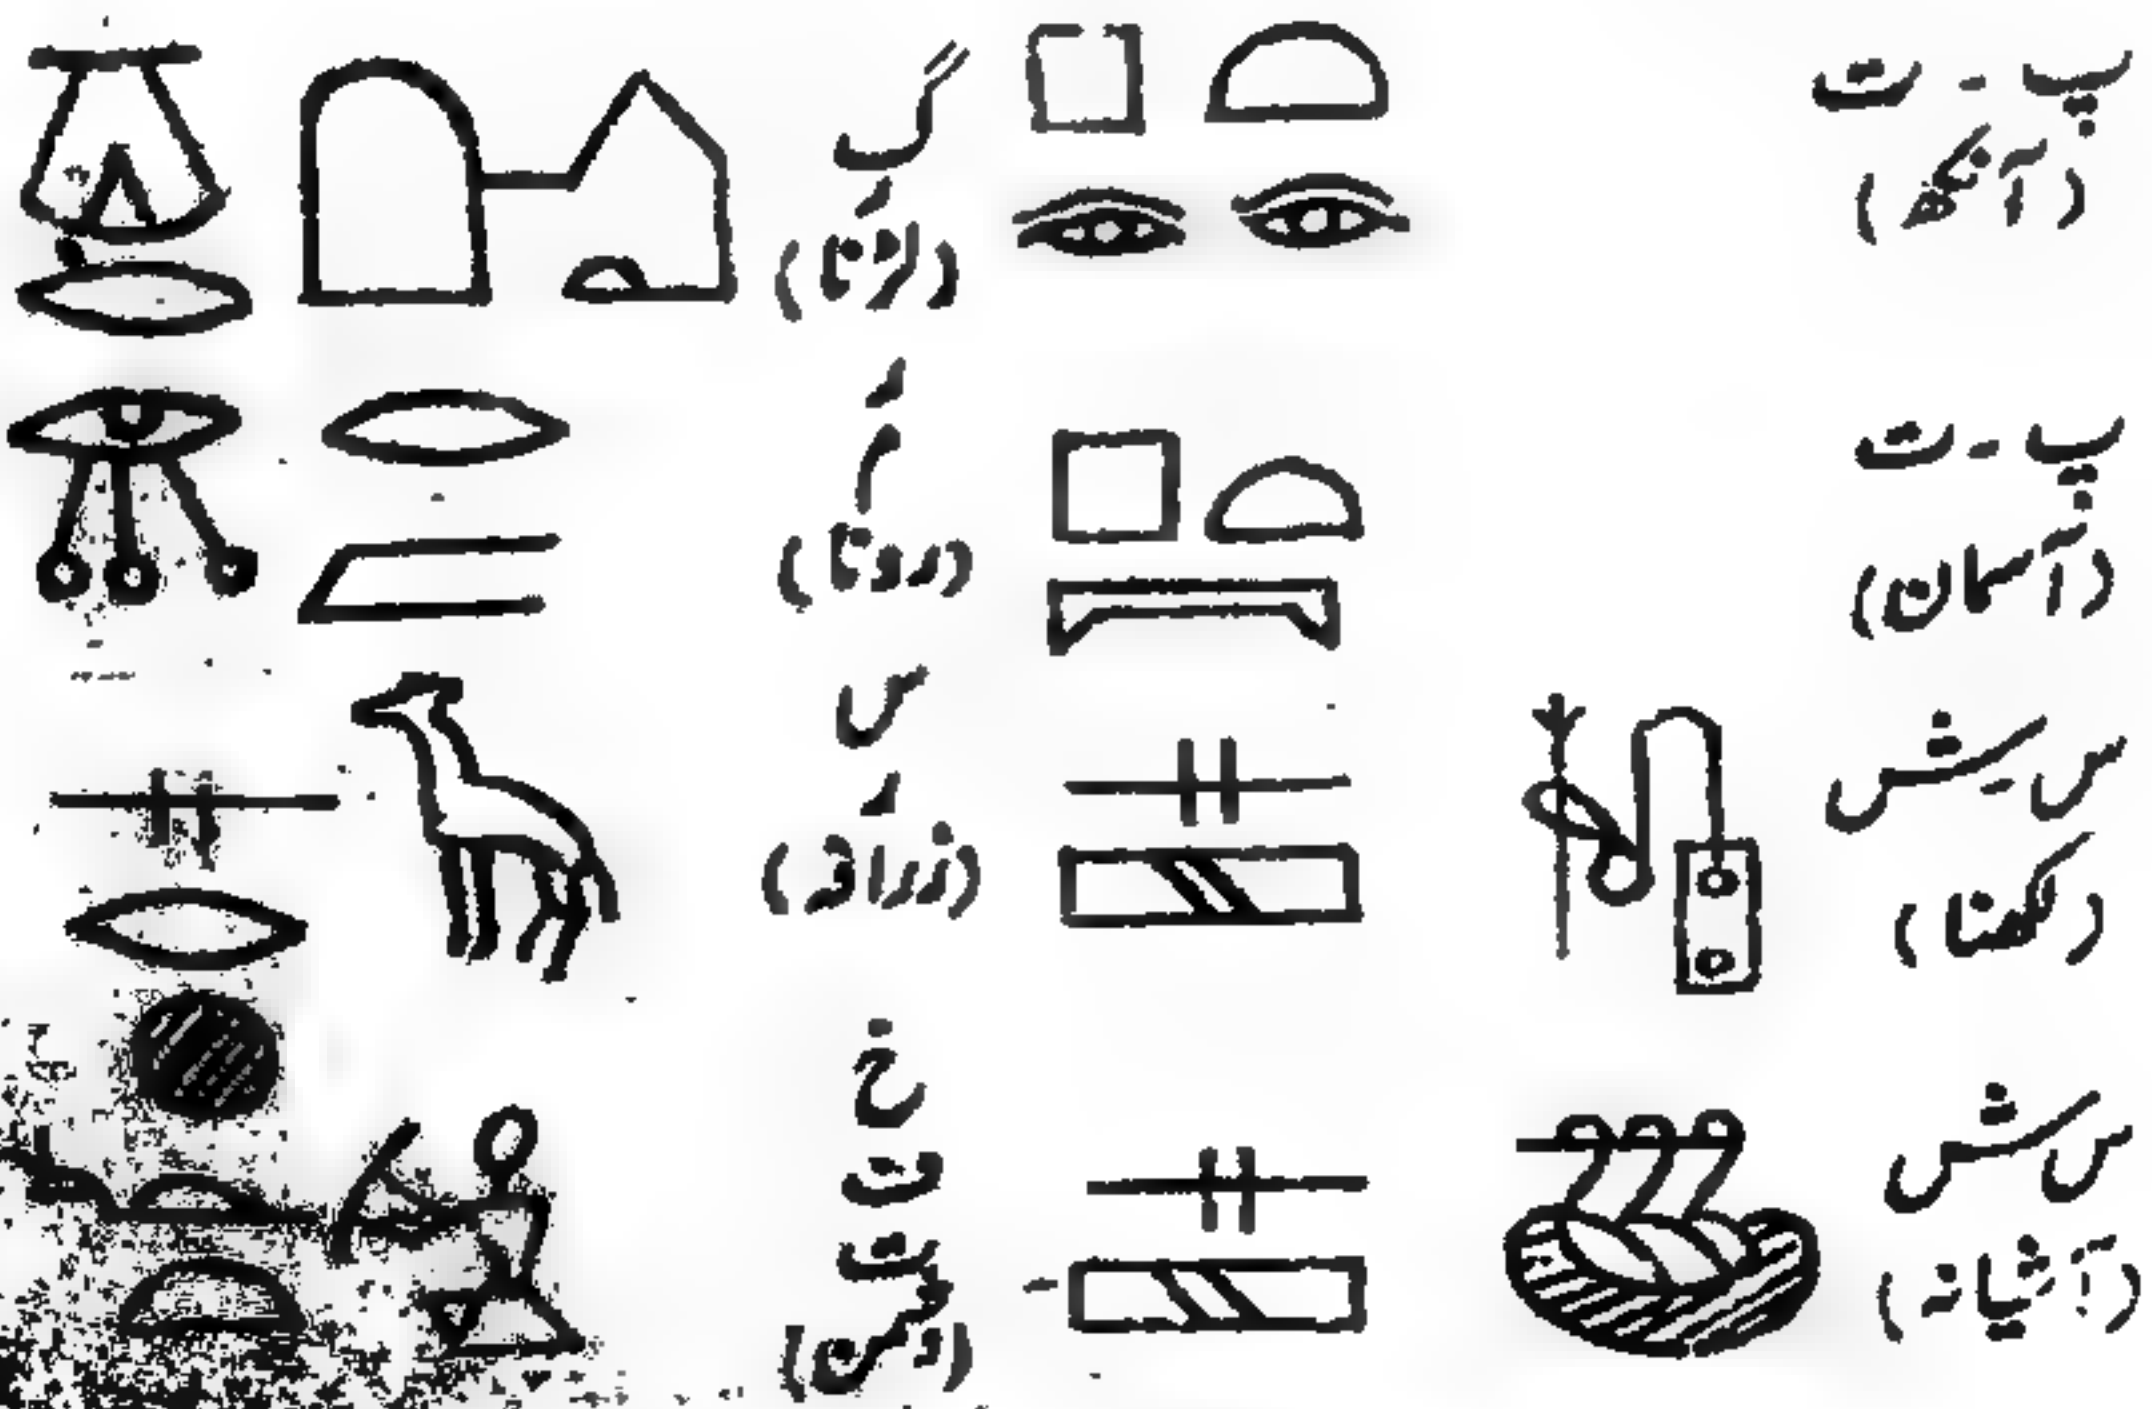 پ - ت
(آنکھ)
پ - ت
(آسمان)
س - ش
(لکھنا)
س ش
(آشیانہ)
گ
ر
(لڑنا)
ر
م
(رونا)
س
ر
(زرافہ)
خ
ت
ت
(دشمن)